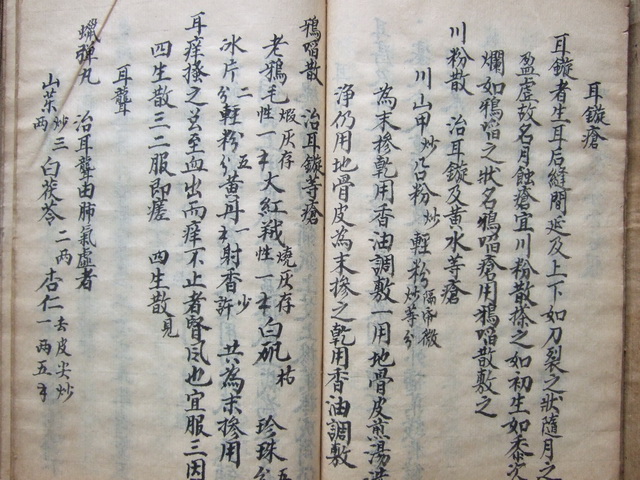 耳鏇瘡
耳鏇者生耳后縫間延及上下如刀裂之狀隨月之
盈虛故名月蝕瘡宜川粉散搽之如初生如黍次
爛如鴉啗之狀名鴉啗瘡用鴉啗散敷之
川粉散 治耳鏇及黃水等瘡
川山甲炒 呂粉炒 輕粉隔帋微炒等分
為末摻乾用香油調敷一用地骨皮煎湯洗
淨仍用地骨皮為末摻之乾用香油調敷
鴉啗散 治耳鏇等瘡
老鴉毛煆灰存性一
大紅羢燒灰存性一
白矾枯 珍珠五分
冰片二分 輕粉五分 黃丹一
射香少許 共為末摻用
耳痒搔之至血出而痒不止者腎风也宜服三因
四生散三二服即瘥 四生散見
耳聾
蠟彈丸 治耳聾由肺氣虛者
山茱炒三兩 白茯苓二兩 杏仁去皮尖炒一兩五